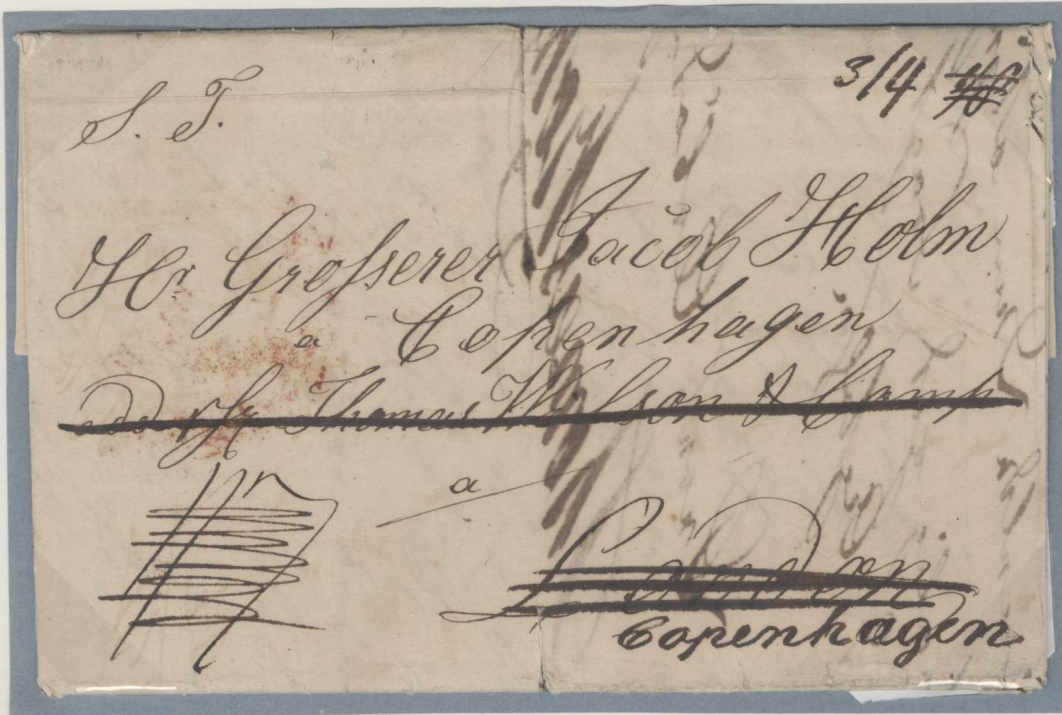 S. T.
3/4
Hr. Grosserer Jacob Holm
a Copenhagen
Thomas Wilson & Comp
a
London
Copenhagen